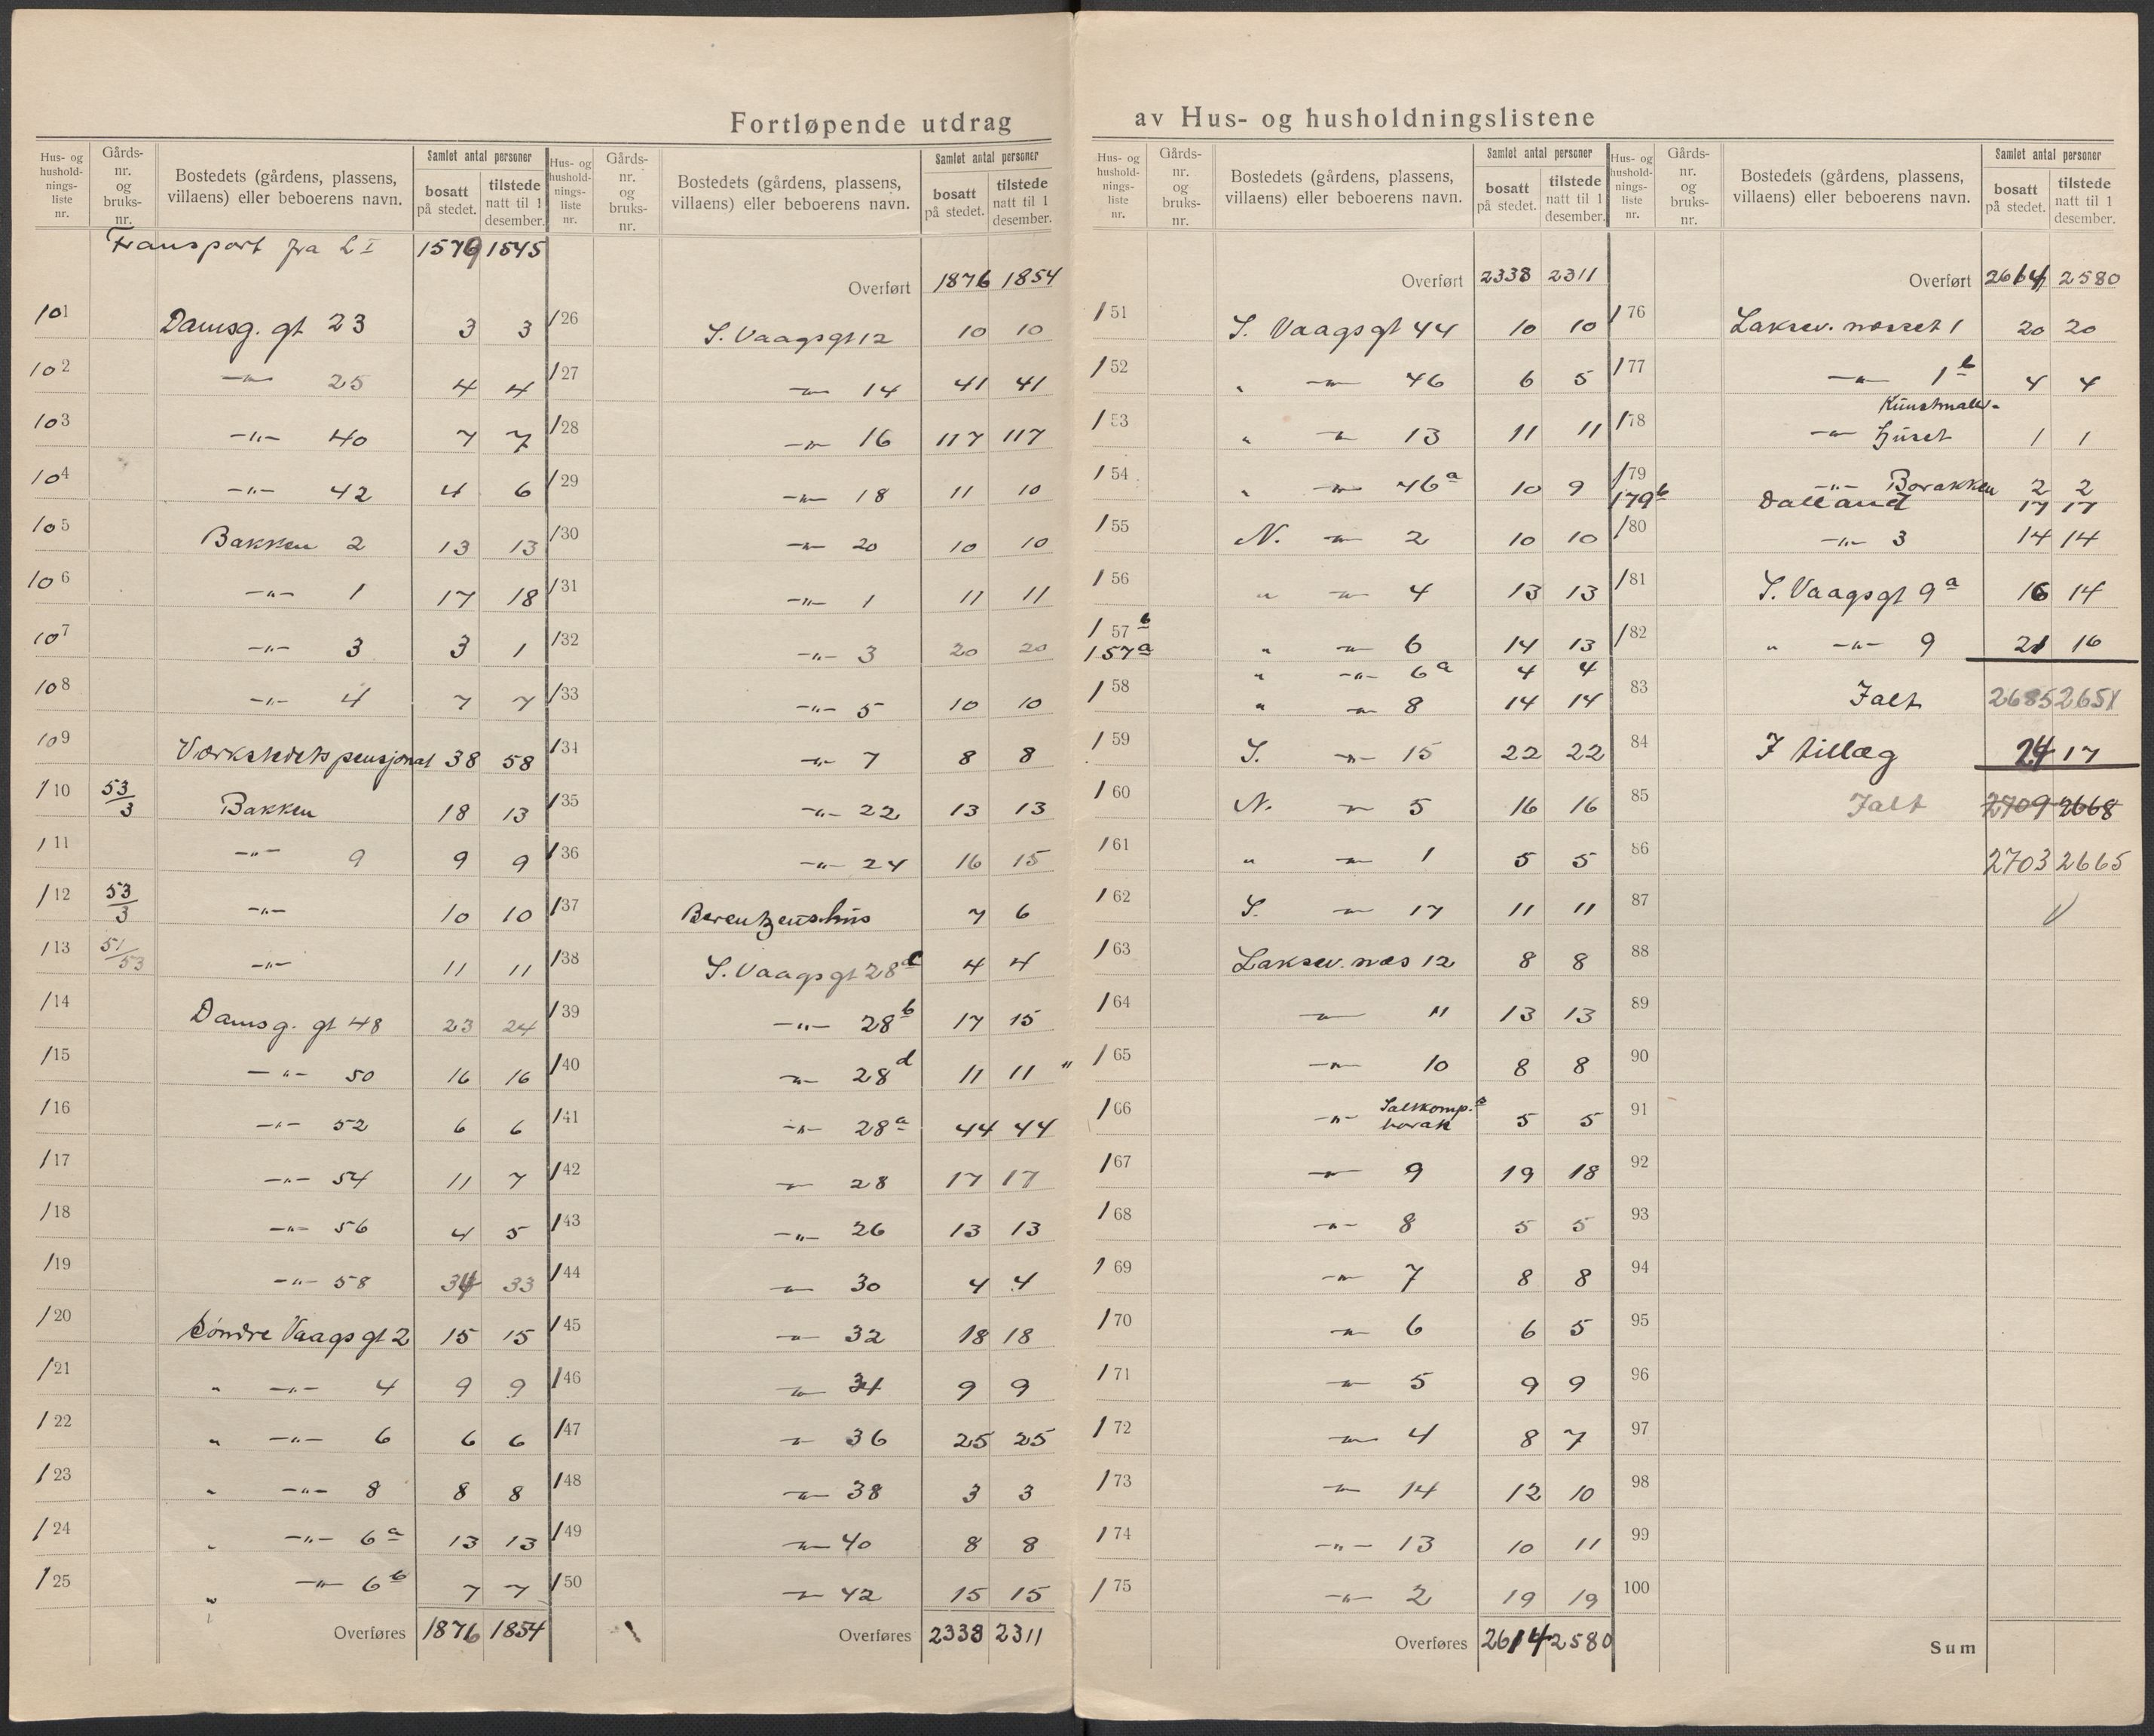 Fortløpende utdrag av Hus- og husholdningslistene
Hus- og husholdnings-liste nr. Gårds-nr. og bruks-nr. Bostedets (gårdens, plassens, villaens) eller beboerens navn. Samlet antal personer bosatt på stedet. tilstede natt til 1 desember.
Transport fra L I 1579 1545
101 Damsg. gt 23 3 3
102 -"- 25 4 4
103 -"- 40 7 7
104 -"- 42 4 6
105 Bakken 2 13 13
106 -"- 1 17 18
107 -"- 3 3 1
108 -"- 4 7 7
109 Værkstedets pensjonat 38 58
110 53/3 Bakken 18 13
111 -"- 9 9 9
112 53/3 -"- 10 10
113 51/53 -"- 11 11
114 Damsg. gt 48 23 24
115 -"- 50 16 16
116 -"- 52 6 6
117 -"- 54 11 7
118 -"- 56 4 5
119 -"- 58 34 33
120 Söndre Vaags gt 2 15 15
121 " -"- 4 9 9
122 " -"- 6 6 6
123 " -"- 8 8 8
124 " -"- 6a 13 13
125 " -"- 6b 7 7
Overføres 1876 1854
Hus- og husholdnings-liste nr. Gårds-nr. og bruks-nr. Bostedets (gårdens, plassens, villaens) eller beboerens navn. Samlet antal personer bosatt på stedet. tilstede natt til 1 desember.
Overført 1876 1854
126 S. Vaagsgt 12 10 10
127 -"- 14 41 41
128 -"- 16 117 117
129 -"- 18 11 10
130 -"- 20 10 10
131 -"- 1 11 11
132 -"- 3 20 20
133 -"- 5 10 10
134 -"- 7 8 8
135 -"- 22 13 13
136 -"- 24 16 15
137 Berentzens hus 7 6
138 S. Vaagsgt 28c 4 4
139 -"- 28b 17 15
140 -"- 28d 11 11 "
141 -"- 28a 44 44
142 -"- 28 17 17
143 -"- 26 13 13
144 -"- 30 4 4
145 -"- 32 18 18
146 -"- 34 9 9
147 -"- 36 25 25
148 -"- 38 3 3
149 -"- 40 8 8
150 -"- 42 15 15
Overføres 2338 2311
Hus- og husholdnings-liste nr. Gårds-nr. og bruks-nr. Bostedets (gårdens, plassens, villaens) eller beboerens navn. Samlet antal personer bosatt på stedet. tilstede natt til 1 desember.
Overført 2338 2311
151 S. Vaagsgt 44 10 10
152 " -"- 46 6 5
153 " -"- 13 11 11
154 " -"- 46a 10 9
155 N. -"- 2 10 10
156 " -"- 4 13 13
157b " -"- 6 14 13
157a " -"- 6a 4 4
158 " -"- 8 14 14
159 S. -"- 15 22 22
160 N. -"- 5 16 16
161 " -"- 1 5 5
162 S. -"- 17 11 11
163 Laksev. næs 12 8 8
164 -"- 11 13 13
165 -"- 10 8 8
166 -"- Saltkomp.s barak 5 5
167 -"- 9 19 18
168 -"- 8 5 5
169 -"- 7 8 8
170 -"- 6 6 5
171 -"- 5 9 9
172 -"- 4 8 7
173 -"- 14 12 10
174 -"- 13 10 11
175 -"- 2 19 19
Overføres 2614 2580
Hus- og husholdnings-liste nr. Gårds-nr. og bruks-nr. Bostedets (gårdens, plassens, villaens) eller beboerens navn. Samlet antal personer bosatt på stedet. tilstede natt til 1 desember.
Overført 2614 2580
176 Laksev. næsset 1 20 20
177 -"- 1b 4 4
178 -"- huset 1 1
179 -"- Barakken 2 2
179b Dalland 17 17
180 -"- 3 14 14
181 S. Vaagsgt 9a 16 14
182 " -"- 9 21 16
83 Ialt 2685 2651
84 I tillæg 24 17
85 Ialt 2709 2668
86 2703 2665
87
88
89
90
91
92
93
94
95
96
97
98
99
100
Sum